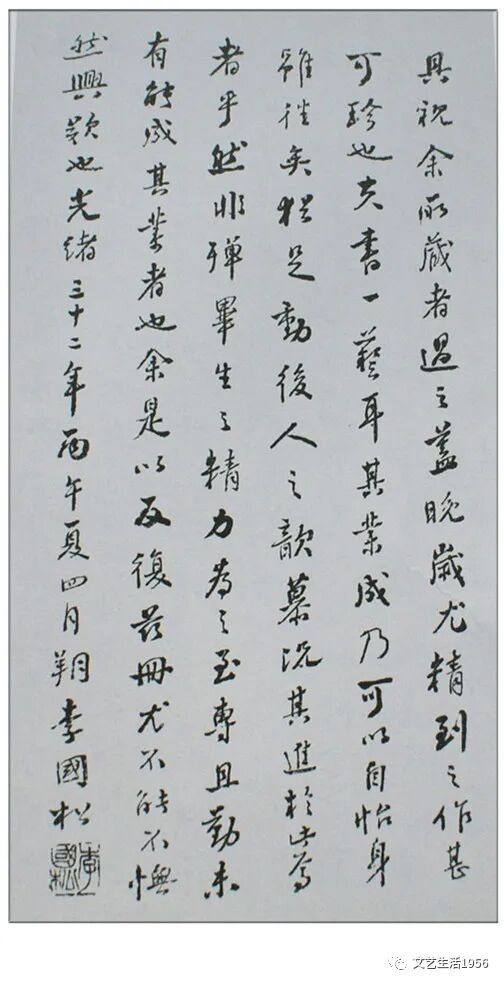 具視余所藏者過之蓋晚歲尤精到之作甚
可珍也夫書一藝耳其業成乃可以自怡身
雖往矣猶足動後人之歆慕況其進於此焉
者乎然非殫畢生之精力為之至專且勤未
有能成其業者也余是以反復茲冊尤不能不憮
然興歎也光緒三十二年丙午夏四月朔李國松
李國松
文艺生活1956